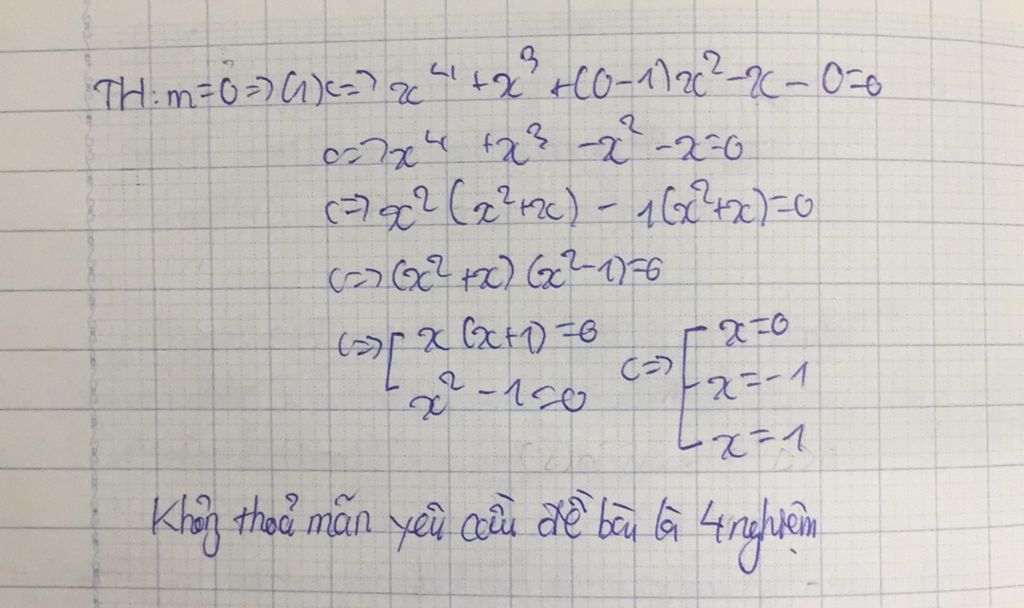 TH: m=0 => (1) <=> x⁴ + x³ + (0-1)x² - x - 0 = 0
<=> x⁴ + x³ - x² - x = 0
<=> x² (x² + x) - 1(x² + x) = 0
<=> (x² + x) (x² - 1) = 0
<=> [ x (x+1) = 0 <=> [ x = 0
x² - 1 = 0 x = -1
x = 1
Không thoả mãn yêu cầu đề bài là 4 nghiệm